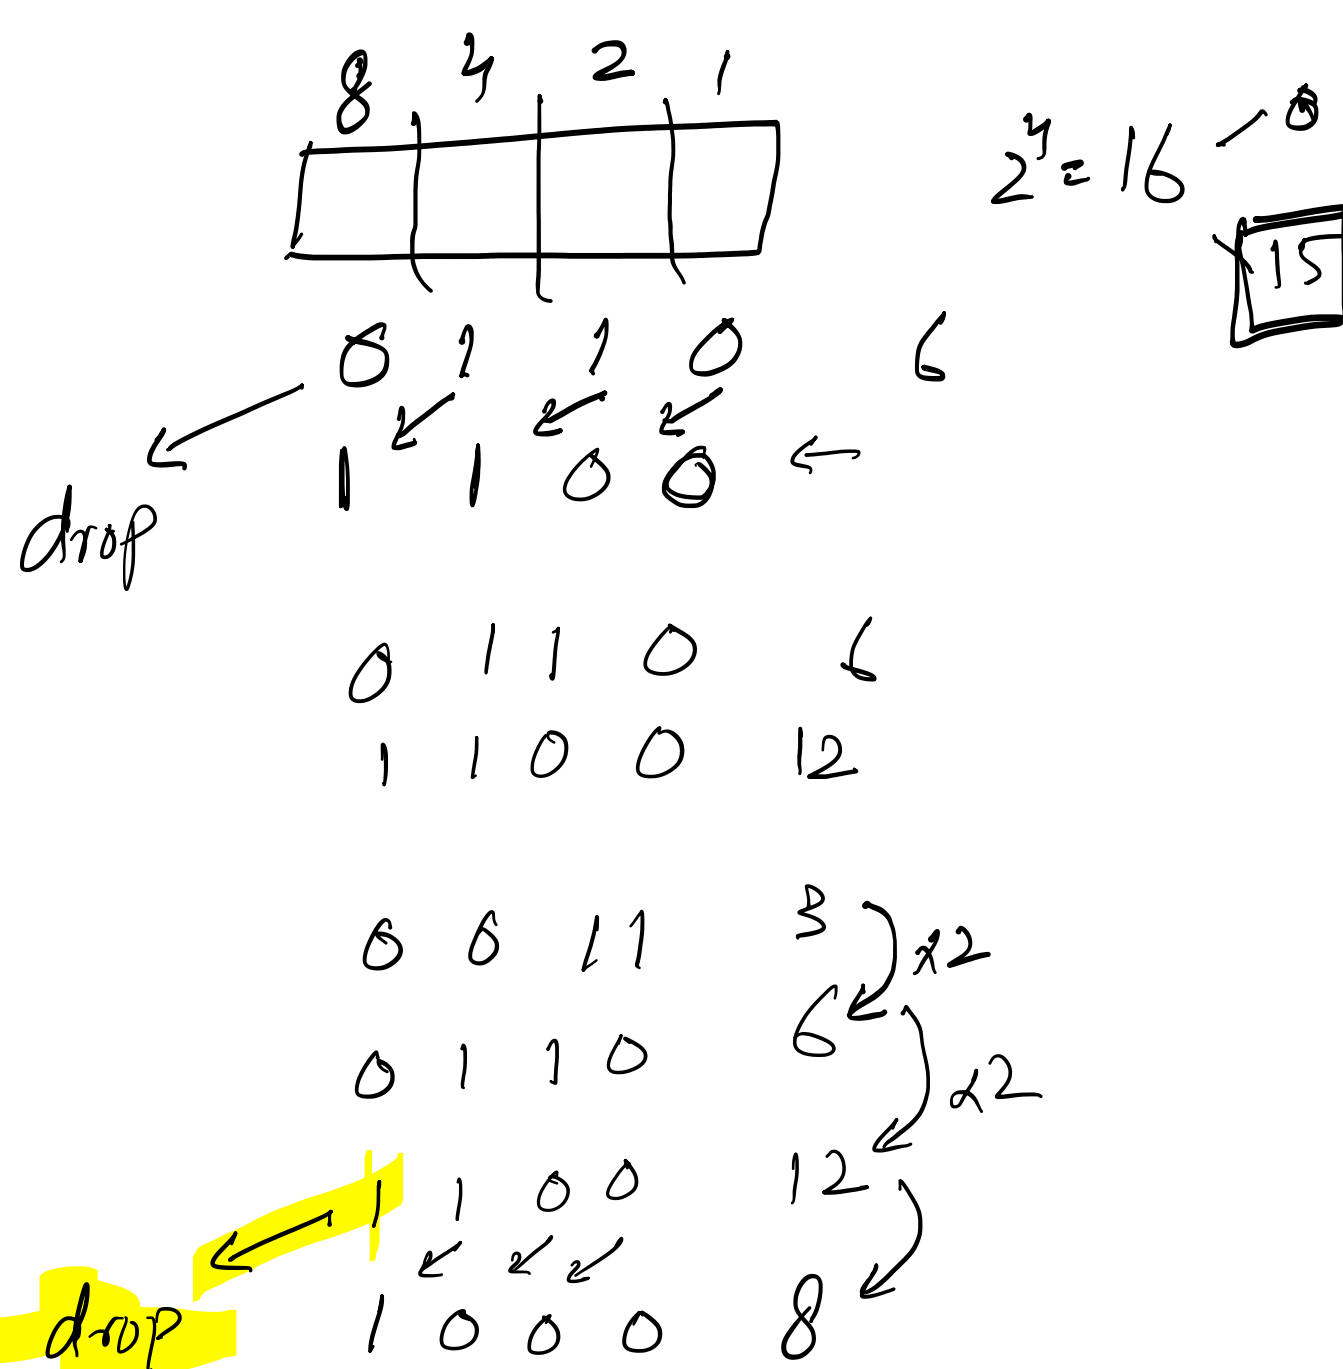 8 4 2 1
2^4 = 16 0
15
0 1 1 0 6
1 1 0 0
drop
0 1 1 0 6
1 1 0 0 12
0 0 1 1 3
x2
0 1 1 0 6
x2
1 1 0 0 12
1 0 0 0 8
drop